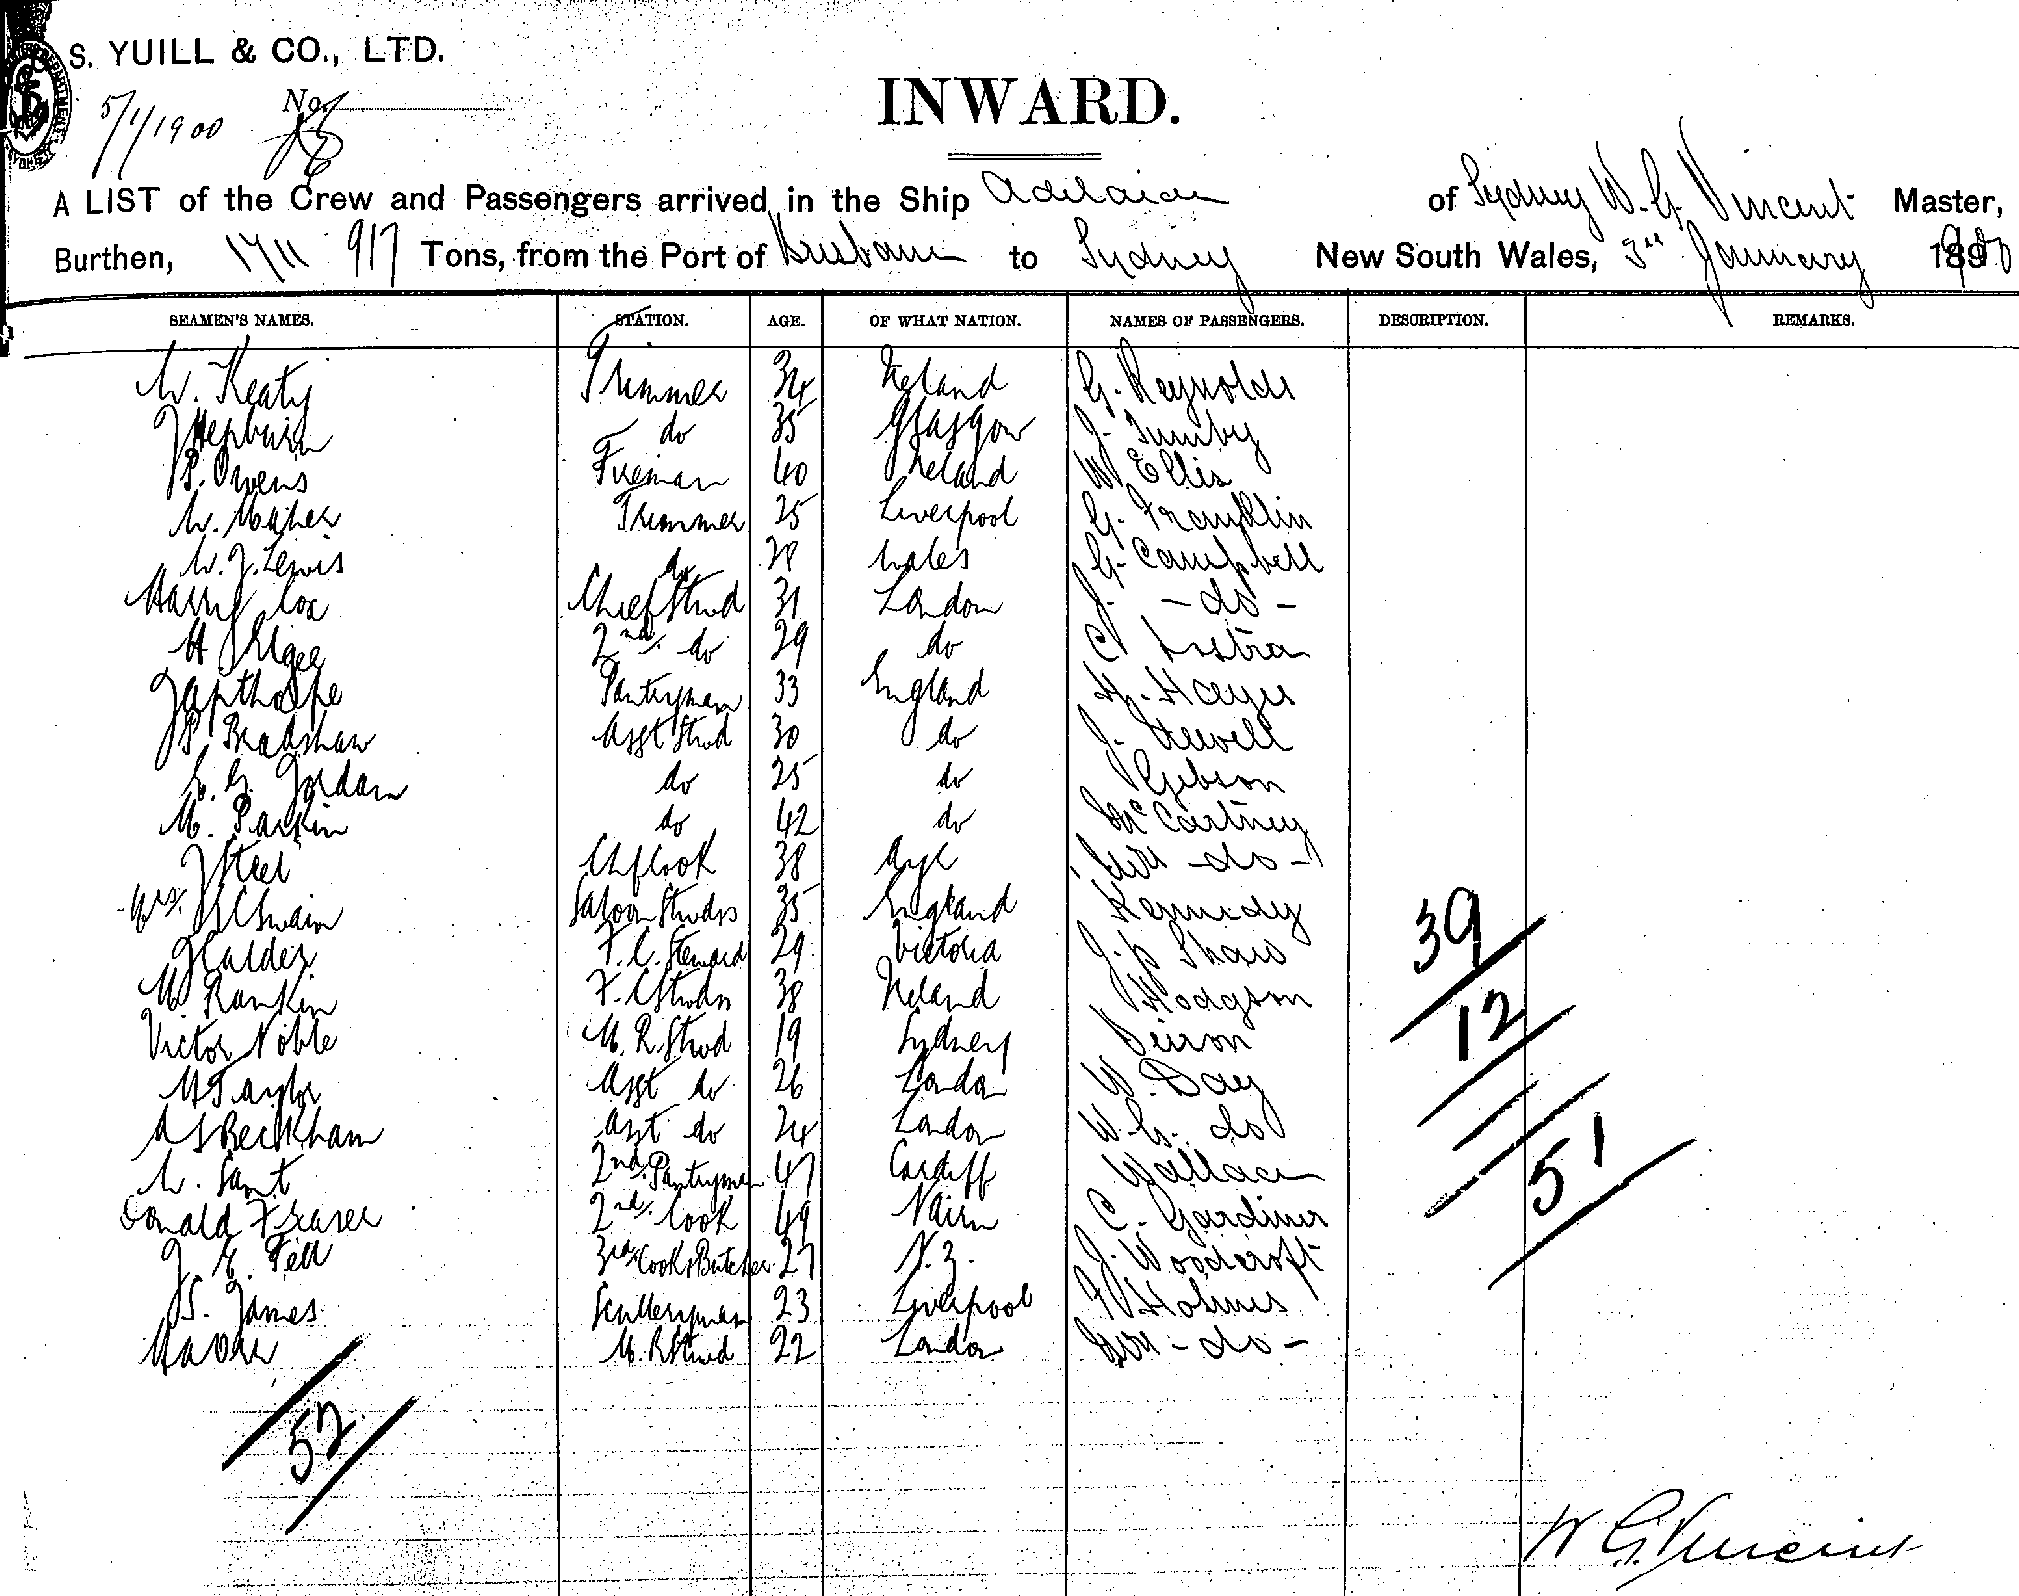 S. YUILL & CO., LTD.
5/1/1900 No.
INWARD.
A LIST of the Crew and Passengers arrived in the Ship Adelaide of Sydney W. G. Vincent Master,
Burthen, 1711 917 Tons, from the Port of Brisbane to Sydney New South Wales, 3rd January 1900
SEAMEN'S NAMES. STATION. AGE. OF WHAT NATION. NAMES OF PASSENGERS. DESCRIPTION. REMARKS.
W. Keaty Trimmer 34 Ireland G. Reynolds
J Hepburn do 35 Glasgow J.
P. Owens Fireman 40 Ireland W Ellis
W. Maher Trimmer 25 Liverpool G. Franklin
W. J. Lewis do 28 Wales G. Campbell
Harry Cox Chief Stwd 31 London J. - do -
H 2nd do 29 do C
J Apthorpe Pantryman 33 England H. Hayes
P Bradshaw Asst Stwd 30 do J.
G. Jordan do 25 do Gibson
M. Parkin do 42 do McCartney
J Steel Chf Cook 38 Ayr - do -
Mrs. Swain Saloon Stwdss 35 England Kennedy
J Calder F. C. Steward 29 Victoria J. P Shaw
M. Rankin F. C Stwdss 38 Ireland Hodgson
Victor Noble M. R. Stwd 19 Sydney
H Taylor Asst do 26 London W. Day
A S Beckham Asst do 24 London W. G. do
W. Sant 2nd Pantryman 47 Cardiff Wallace
Donald Fraser 2nd Cook 49 Nairn C. Gardiner
J E. Fell 3rd Cook & Butcher 27 N. Z. J. Woodcroft
S. James Sculleryman 23 Liverpool Holmes
M. R Stwd 22 London - do -
39
12
51
52
W G Vincent